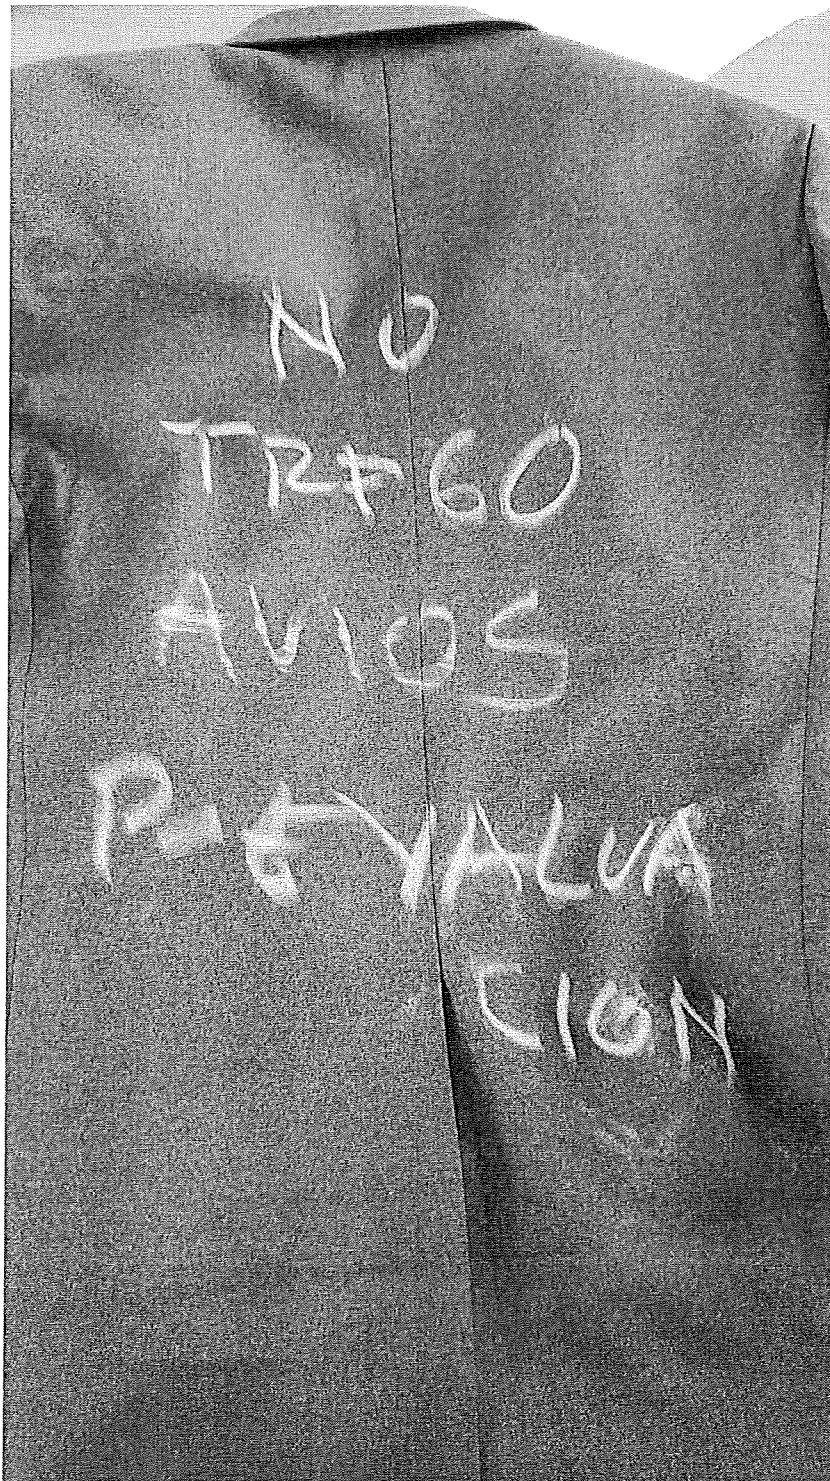 NO
TRAGO
AVIOS
P-EVALUA
CION